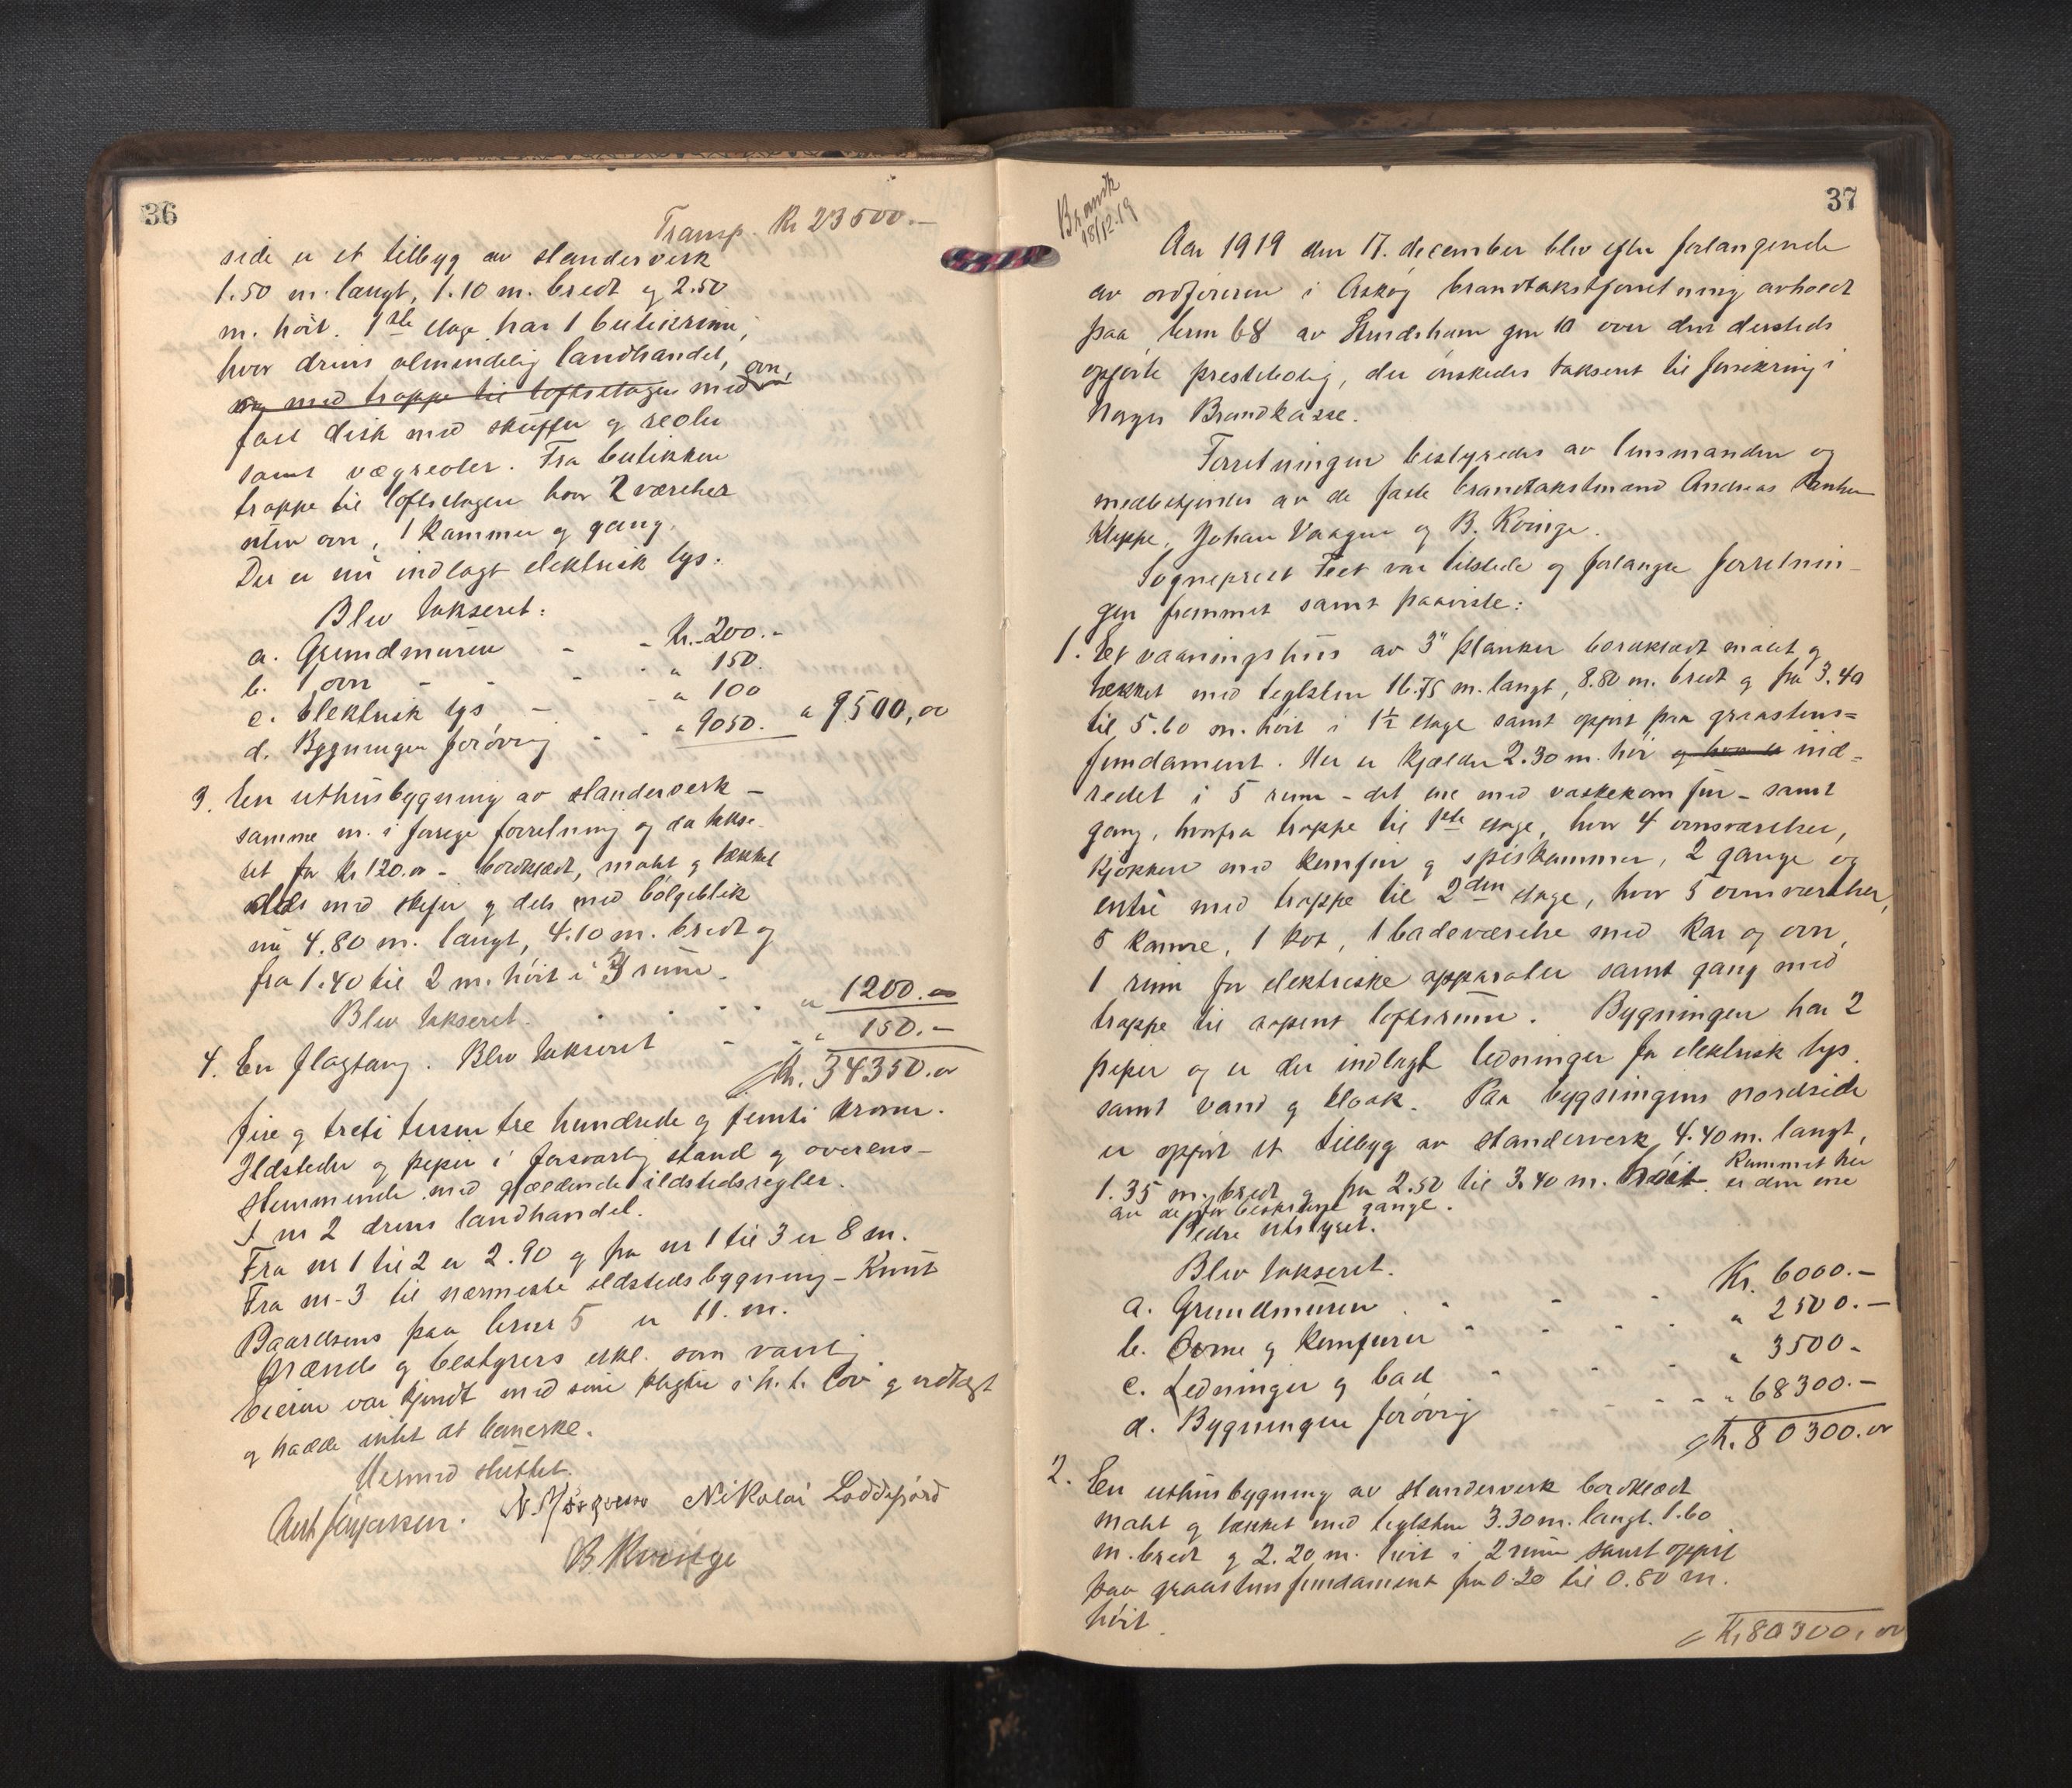 36
Transp. Kr 23500.-
side er et tilbyg av standerverk
1.50 m. langt, 1.10 m. bredt og 2.50
m. höit. 1ste etage har 1 butikrum,
hvor drives almindelig landhandel,
med trappe til loftsetagen med ovn,
fast disk med skuffer og reoler
samt vægreoler. Fra butikken
trappe til loftsetagen hvor 2 værelser
uten ovn, 1 kammer og gang.
Der er nu indlagt elektrisk lys.
Blev takseret:
a. Grundmuren - - kr. 200.-
b. 1 ovn - - - " 150.
c. Elektrisk lys - " 100
d. Bygningen forövrig - - " 9050. " 9500,00
3. En uthusbygning av standerverk -
samme nr. i forrige forretning og da takse-
ret for kr 120.00 - bordklædt, malet og tækket
dels med skifer og dels med bölgeblik
nu 4.80 m. langt, 4.10 m. bredt og
fra 1.40 til 2 m. höit i 3 rum.
Blev takseret. . . . . " 1200.00
4. En flagstang. Blev takseret - - " 150.-
Kr. 34350.00
fire og treti tusen tre hundrede og femti kroner.
Ildsteder og piper i forsvarlig stand og overens-
stemmende med gjældende ildstedsregler.
I nr 2 drives landhandel.
Fra nr 1 til 2 er 2.90 og fra nr 1 til 3 er 8 m.
Fra nr. 3 til nærmeste ildstedsbygning - Knut
Baardsens paa brnr 5 er 11. m.
Brænde og bestyrers erkl. som vanlig
Eieren var kjendt med sine pligter i h. t. lov og vedtægt
og hadde intet at bemerke.
Hermed sluttet.
N. Mörgensen Nikolai Loddefjord
B. Kvinge
37
Brandk
18/12.19
Aar 1919 den 17. december blev efter forlangende
av ordföreren i Askøy brandtakstforretning avholdt
paa brnr 68 av Strudshavn gnr 10 over den dersteds
opförte presteboblig, der önskedes taksert til forsikring i
Norges Brandkasse.
Forretningen bestyredes av lensmanden og
medbetjentes av de faste brandtakstmænd Andreas
Kleppe, Johan Vaagne og B. Kvinge.
Sogneprest Feet var tilstede og forlangte forretnin-
gen fremmet samt paaviste:
1. Et vaaningshus av 3" planker bordklædt malet og
tækket med teglsten 16.75 m. langt, 8.80 m. bredt og fra 3.40
til 5.60 m. höit i 1½ etage samt opfört paa graastens=
fundament. Her er kjælder 2.30 m. höi og hvor er ind=
redet i 5 rum - det ene med vaskekomfur - samt
gang, hvorfra trappe til 1ste etage, hvor 4 ovnsværelser,
kjökken med komfur og spiskammer, 2 gange og
entre med trappe til 2den etage, hvor 5 ovnsværelser,
5 kamre, 1 kot, 1 badeværelse med kar og ovn,
1 rum for elektriske apparater samt gang med
trappe til aapent loftsrum. Bygningen har 2
piper og er der indlagt ledninger for elektrisk lys
samt vand og kloak. Paa bygningens nordside
er opfört et tilbyg av standerverk, 4.40 m. langt,
1.35 m. bredt og fra 2.50 til 3.40 m. höit. Rummet her er den ene
av de för beskrevne gange.
Bedre utstyret.
Blev takseret.
a. Grundmuren . - - - Kr. 6000.-
b. Ovne og komfurer - - - - " 2500.-
c. Ledninger og bad - - - " 3500.-
d. Bygningen forövrig - - - - " 68300.-
Kr. 80300.00
2. En uthusbygning av standerverk bordklædt
malet og tækket med teglsten 3.30 m. langt. 1.60
m. bredt og 2.20 m. höit i 2 rum samt opfört
paa graastensfundament fra 0.20 til 0.80 m.
höit.
Kr. 80300,00